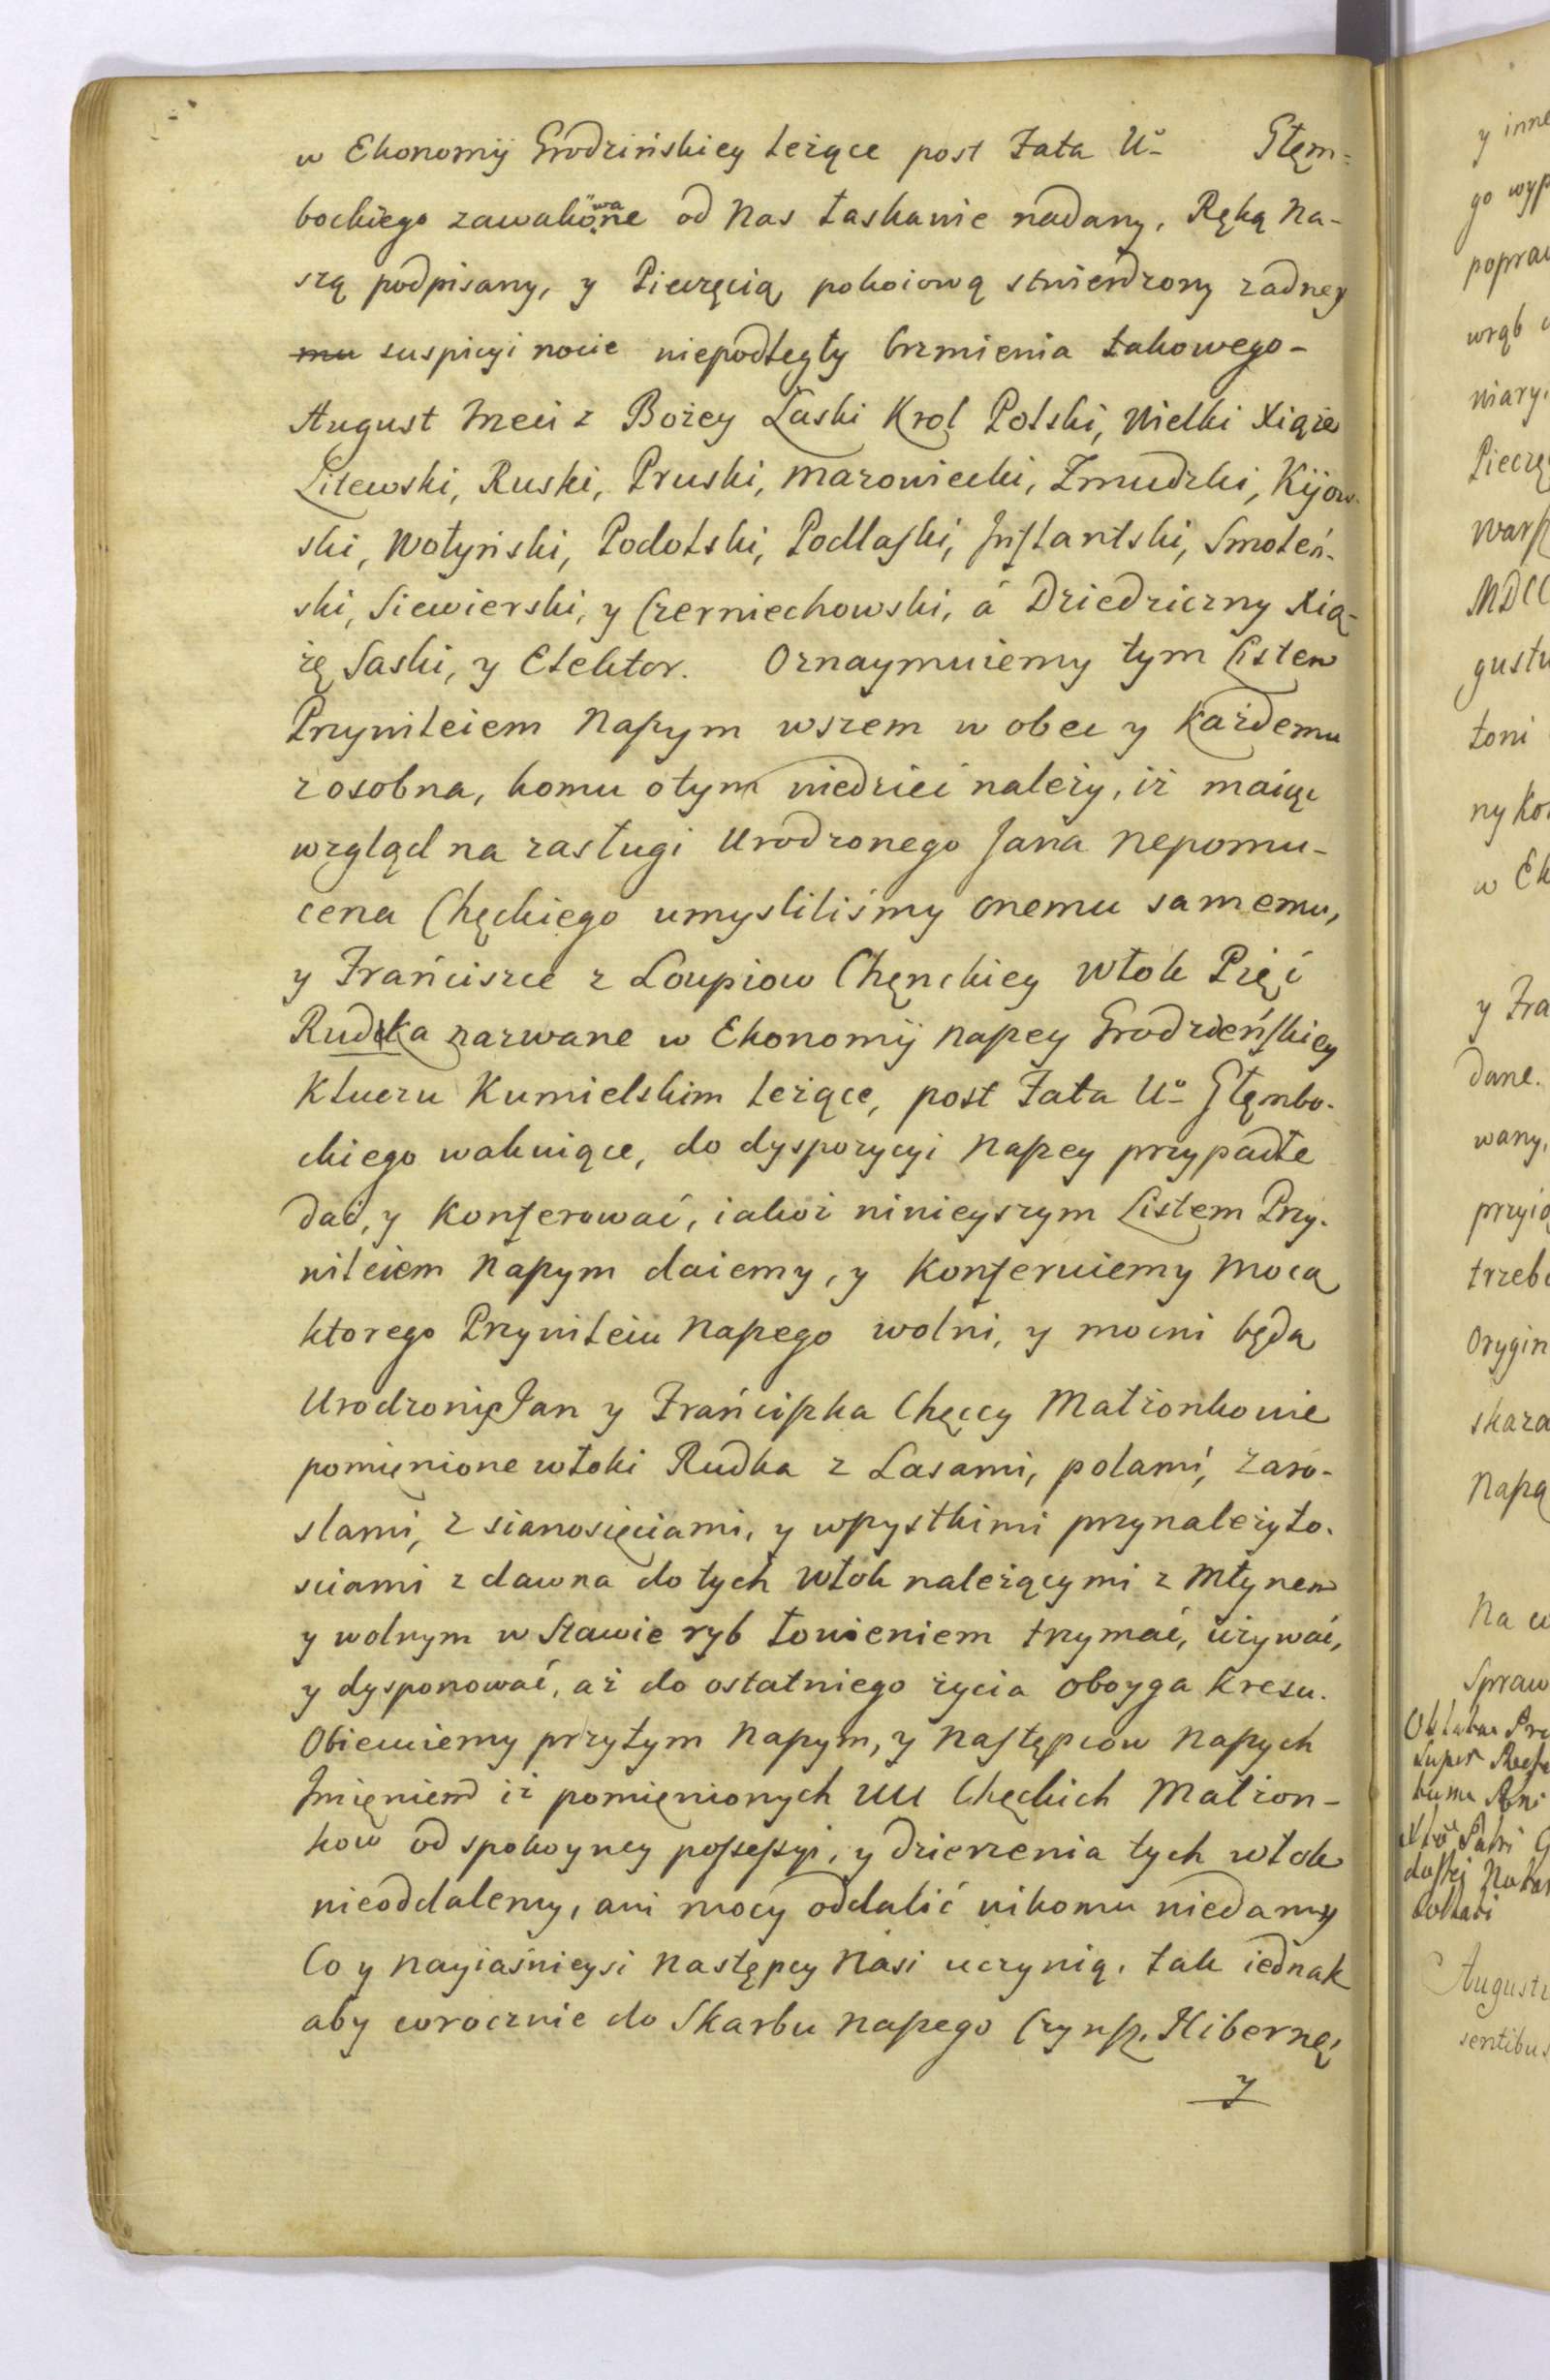 w Ekonomij Grodzińskiey leżące post Fata U° Głęm=
bockiego zawakowane od Nas łaskawie nadany, Ręką Na-
szą podpisany, y Pieczęcią pokoiową stwierdzony żadney
mu suspicyi nocie niepodległy brzmienia takowego-
August Trzeci z Bożey Łaski Krol Polski, Wielki Xiąże
Litewski, Ruski, Pruski, Mazowiecki, Żmudzki, Kijow-
ski, Wołyński, Podolski, Podlaski, Inflantski, Smoleń-
ski, Siewierski, y Czerniechowski, á Dziedziczny Xią-
żę Saski, y Elektor. Oznaymuiemy tym Listem
Przywileiem Naszym wszem w obec y każdemu
z osobna, komu o tym wiedzieć należy, iż maiąc
wzgląd na zasługi Urodzonego Jana Nepomu-
cena Chęckiego umysliliśmy onemu samemu,
y Frańciszce z Loupiow Chęnckiey Włok Pięć
Rudka nazwane w Ekonomij Naszey Grodzieńskiey
Kluczu Kumielskim leżące, post Fata U° Głęmbo-
ckiego wakuiące, do dyspozycyi Naszey przypadłe
dać, y konferować, iakoż ninieyszym Listem Przy-
wileiem Naszym daiemy, y konferuiemy Mocą
ktorego Przywileiu Naszego wolni, y mocni będą
Urodzonię Jan y Frańciszka Chęccy Małżonkowie
pomięnione włoki Rudka z Lasami, polami, Zaro-
slami, z sianosięciami, y wszystkimi przynależyto-
sciami z dawna do tych Włok należącymi z Młynem
y wolnym w Stawie ryb łowieniem trzymać, używać,
y dysponować, aż do ostatniego życia oboyga kresu.
Obiecuiemy przytym Naszym, y Następcow Naszych
Imięniem iż pomięnionych UU Chęckich Małżon-
kow od spokoyney possessyi, y dzierżenia tych włok
nieoddalemy, ani mocy oddalić nikomu niedamy
Co y Nayiaśnieysi Następcy Nasi uczynią, tak iednak
aby corocznie do Skarbu Naszego Czynsz, Hibernę,
y
y inne
go wyp
popraw
wrąb
niary,
Pieczę
Warsz
MDCC
gustu
toni
ny Ko
w Ek
y Fra
dane.
wany,
przyią
trzeb
Orygin
skaza
Naszą
Na
Spraw
Augustu
sentibus